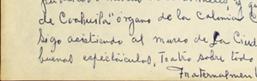 de Coahuila" órgano de la Colonia C
Sigo asistiendo al museo de La Ciud
buenos espectáculos, Teatro sobre todo
Fraternalmen